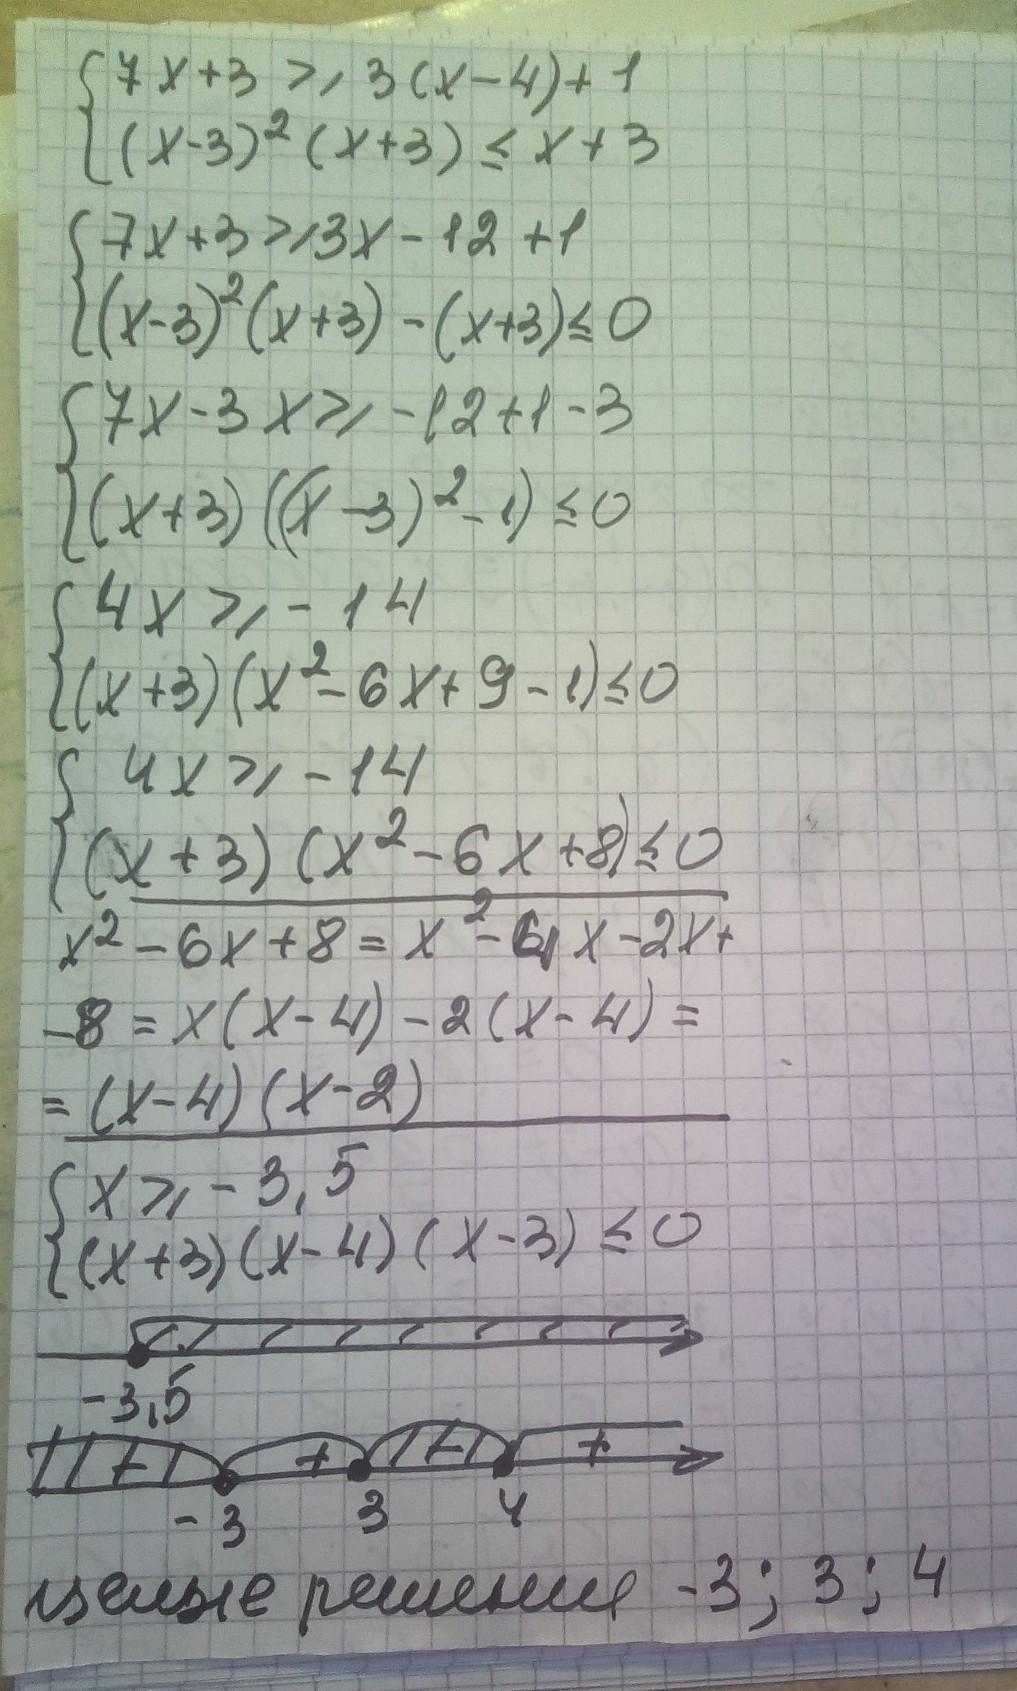 { 7x+3 ⩾ 3(x-4)+1
(x-3)² (x+3) ≤ x+3
{ 7x+3 ⩾ 3x-12+1
(x-3)²(x+3) - (x+3) ≤ 0
{ 7x-3x ⩾ -12+1-3
(x+3) ((x-3)²-1) ≤ 0
{ 4x ⩾ -14
(x+3)(x²-6x+9-1) ≤ 0
{ 4x ⩾ -14
(x+3) (x²-6x+8) ≤ 0
x²-6x+8 = x²-4x-2x+
-8 = x(x-4)-2(x-4) =
= (x-4)(x-2)
{ x ⩾ -3,5
(x+3)(x-4)(x-3) ≤ 0
-3,5
- + - +
-3 3 4
целые решения -3; 3; 4